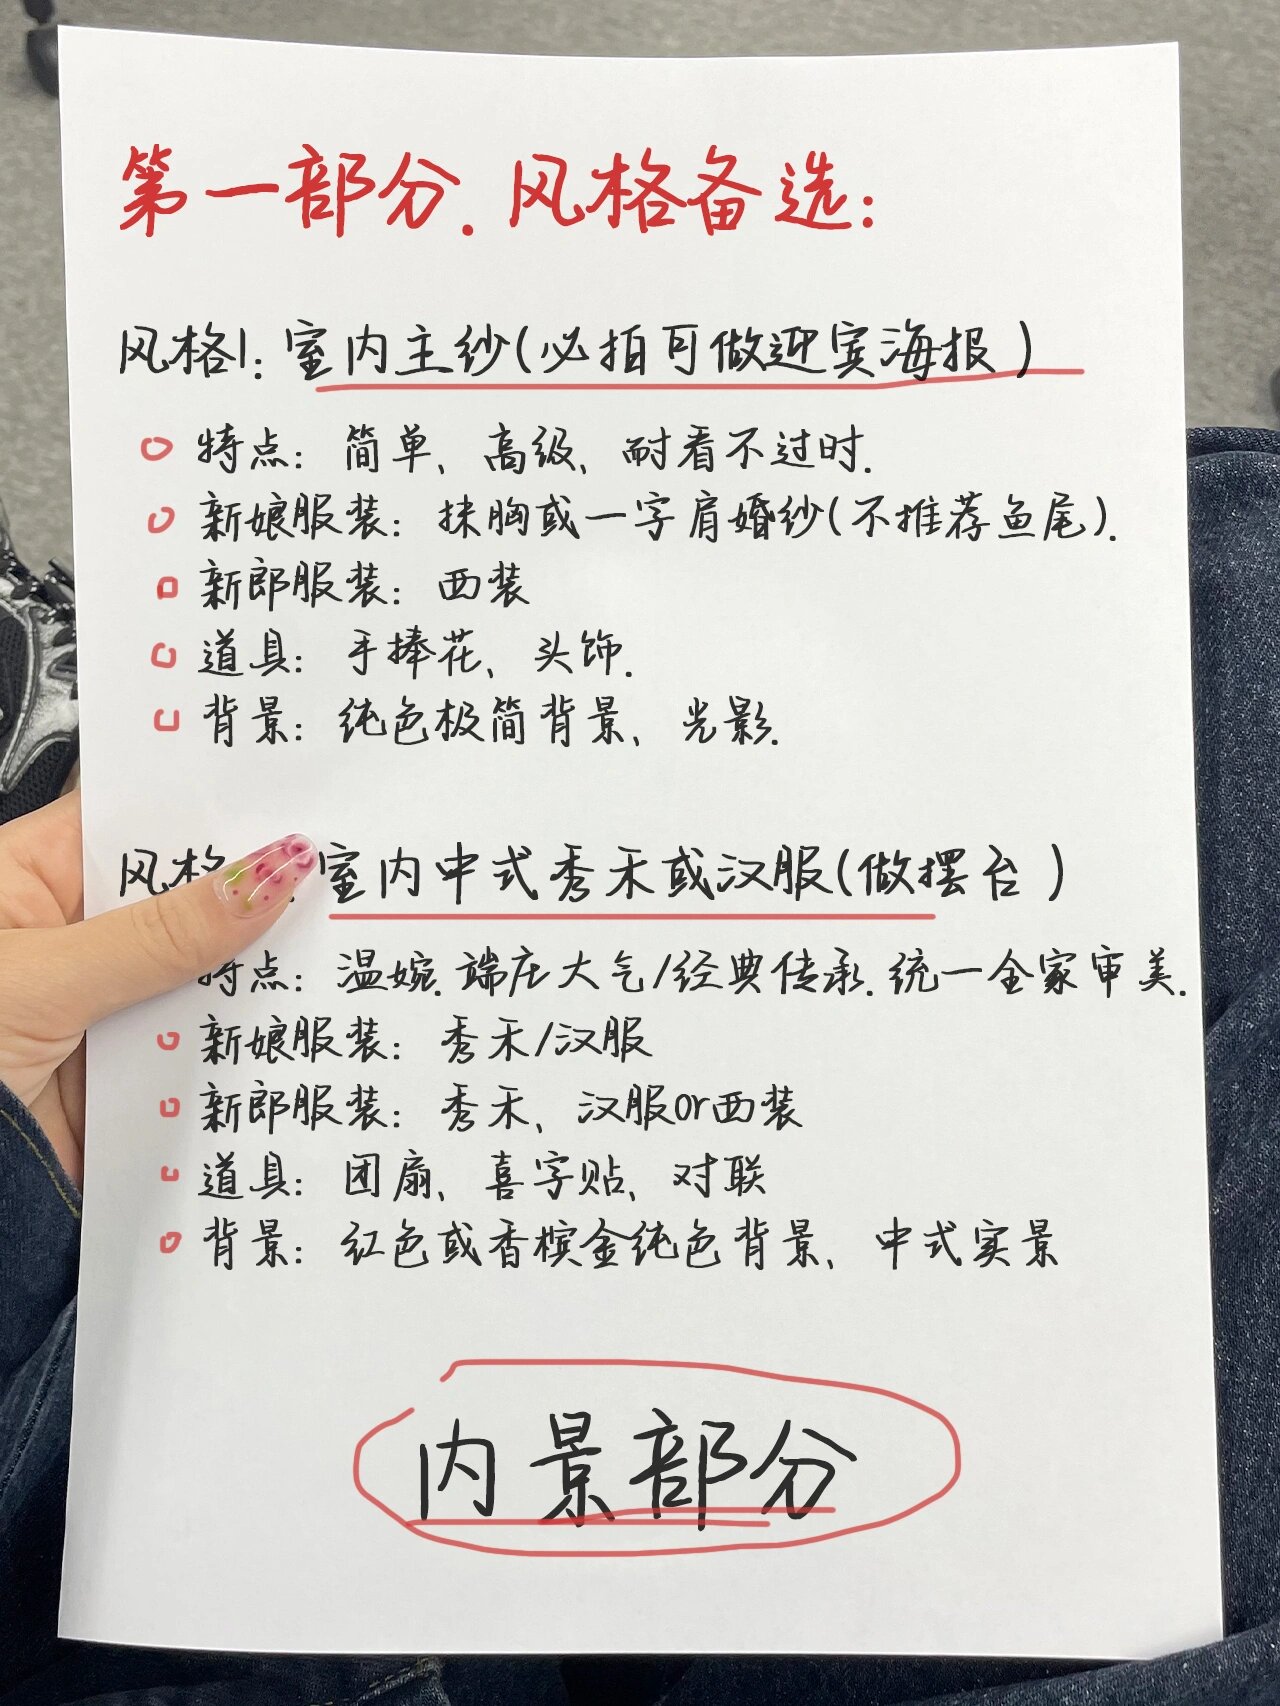 第一部分.风格备选:
风格1:室内主纱(必拍可做迎宾海报)
特点:简单、高级、耐看不过时.
新娘服装:抹胸或一字肩婚纱(不推荐鱼尾).
新郎服装:西装
道具:手捧花、头饰.
背景:纯色极简背景、光影.
风格 室内中式秀禾或汉服(做摆台)
特点:温婉.端庄大气/经典传承.统一全家审美.
新娘服装:秀禾/汉服
新郎服装:秀禾、汉服or西装
道具:团扇、喜字贴、对联
背景:红色或香槟金纯色背景、中式实景
内景部分